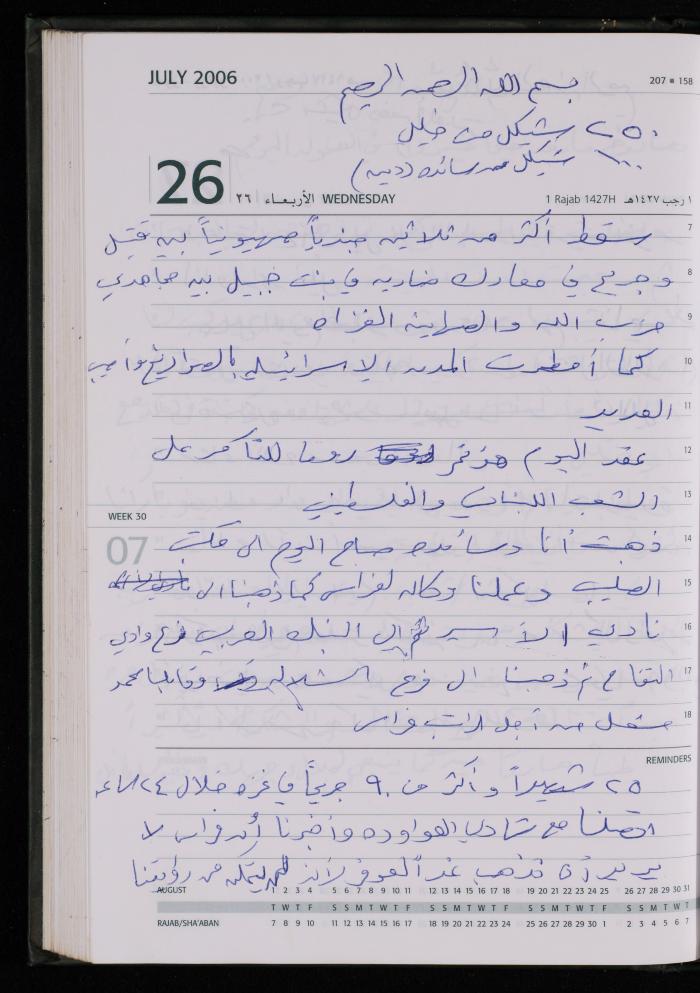 JULY 2006
207 ■ 158
بسم الله الرحمن الرحيم
٢٥٠ شيكل من خليل
١٠٠٠ شيكل من سائده (دين)
26 ٢٦ الأربعـاء WEDNESDAY 1 Rajab 1427H ١ رجب ١٤٢٧هـ
7 سقط أكثر من ثلاثين جندياً صهيونياً بين قتيل
8 وجريح في معارك ضاريه في بنت جبيل بين مجاهدي
9 حزب الله والصهاينة الغزاه
10 كما أمطرت المدن الاسرائيليه بالصواريخ وأصيب
11 العديد
12 عقد اليوم مؤتمر روما للتآمر على
13 الشعب اللبناني والفلسطيني
WEEK 30
07
14 ذهبت أنا وسائده صباح اليوم الى مكتب
15 الصليب وعملنا وكاله لفراس كما ذهبنا الى
16 نادي الأسير ثم الى البنك العربي فرع وادي
17 التفاح ثم ذهبنا الى فرع السلام وقابلنا محمد
18 من أجل راتب فراس
REMINDERS
٢٥ شهيداً وأكثر من ٩٠ جريحاً في غزه خلال ٢٤ ساعه
اتصلنا مع شادي العواوده وأخبرنا أن فراس لا
يريد أن نذهب غداً لعوفر لأنه لن يتمكن من رؤيتنا
AUGUST 1 2 3 4 5 6 7 8 9 10 11 12 13 14 15 16 17 18 19 20 21 22 23 24 25 26 27 28 29 30 31
T W T F S S M T W T F S S M T W T F S S M T W T F S S M T W T
RAJAB/SHA'ABAN 7 8 9 10 11 12 13 14 15 16 17 18 19 20 21 22 23 24 25 26 27 28 29 30 1 2 3 4 5 6 7